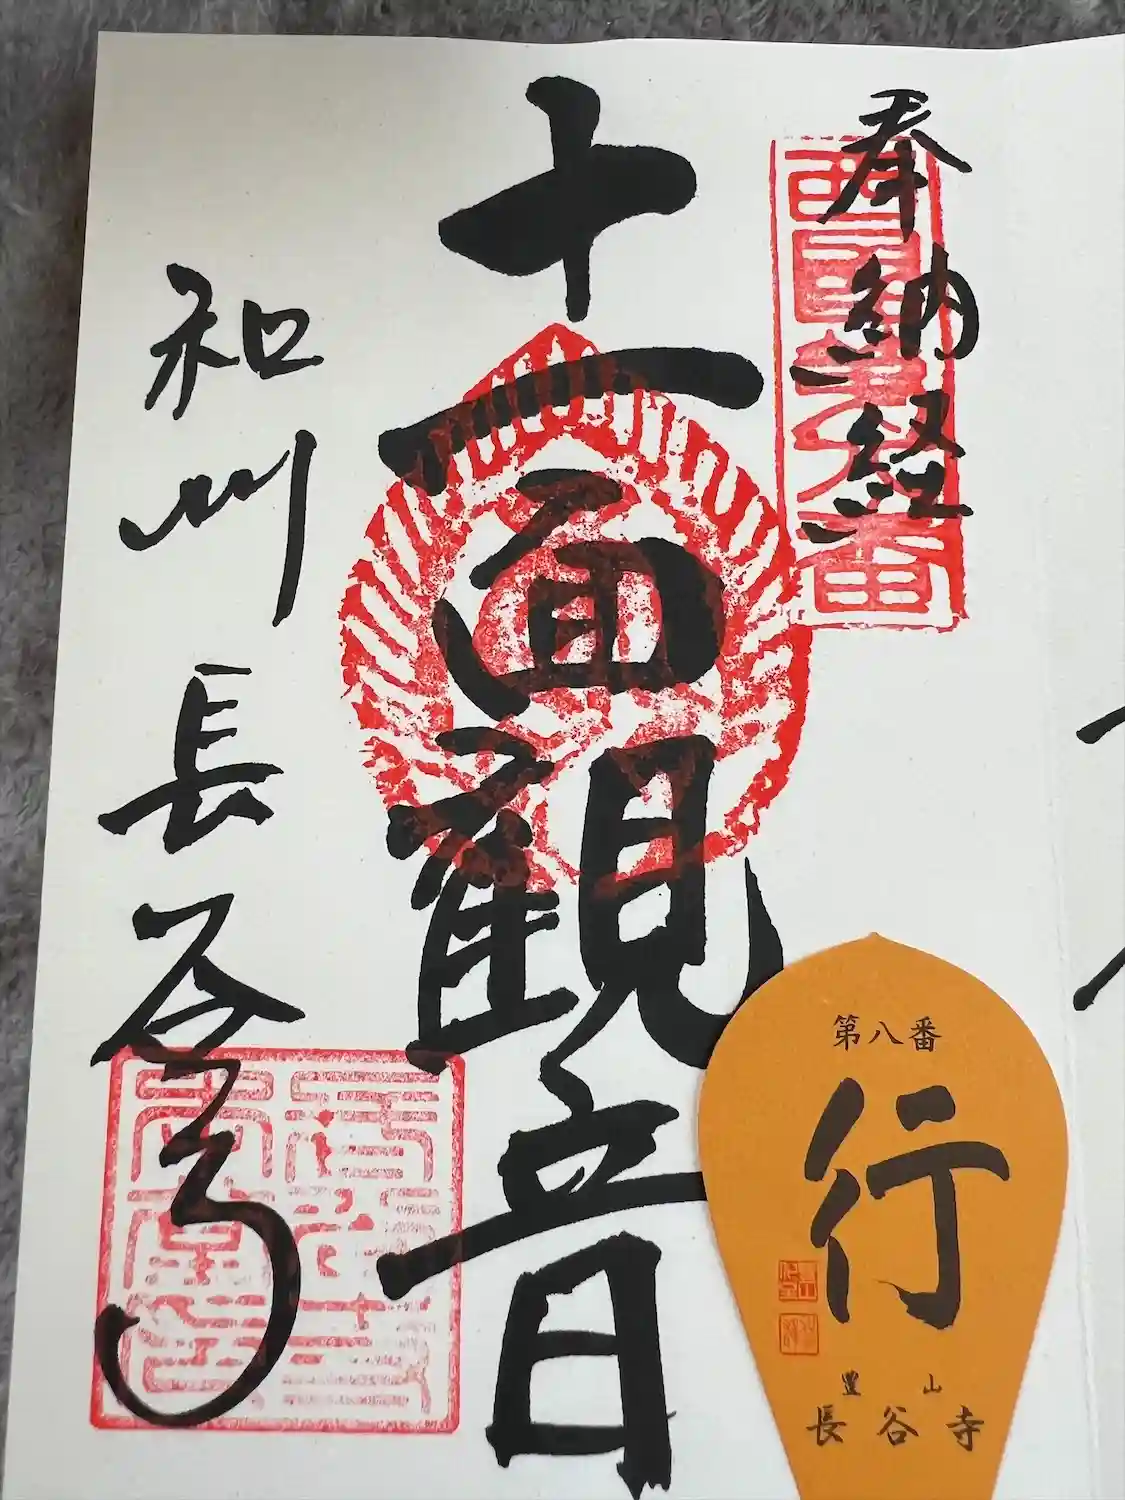 奉納経
西国第八番
十一面観音
和州長谷寺
第八番
行
豊山
長谷寺